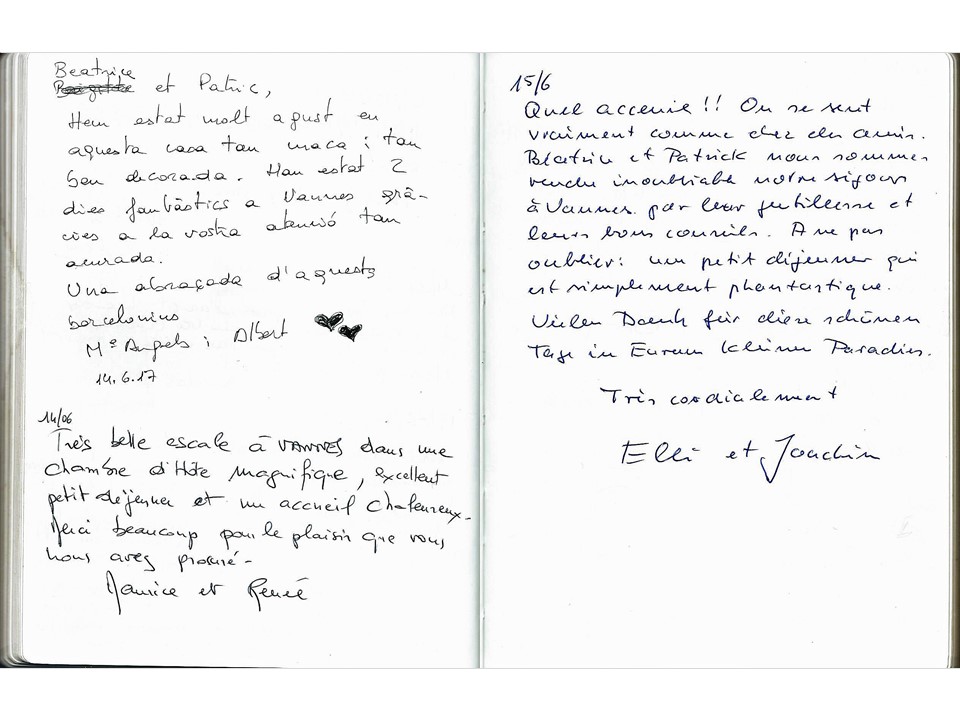 Beatrice
et Patric,
Hem estat molt a gust en
aquesta casa tan maca i tan
ben decorada. Han estat 2
dies fantàstics a Vannes grà-
cies a la vostra atenció tan
acurada.
Una abraçada d'aquests
barcelonins
Mª Àngels i Albert
14.6.17
14/06
Très belle escale à VANNES dans une
chambre d'Hôte magnifique, excellent
petit déjeuner et un accueil chaleureux.
Merci beaucoup pour le plaisir que vous
nous avez procuré-
Maurice et Renée
15/6
Quel accueuil !! On se sent
vraiment comme chez des amis.
Béatrice et Patrick nous sommes
rendu inoubliable notre séjour
à Vannes. par leur gentillesse et
leurs bons conseils. A ne pas
oublier: un petit déjeuner qui
est simplement phantastique.
Vielen Dank für diese schönen
Tage in Eurem kleinen Paradies.
Très cordialement
Elli et Joachim